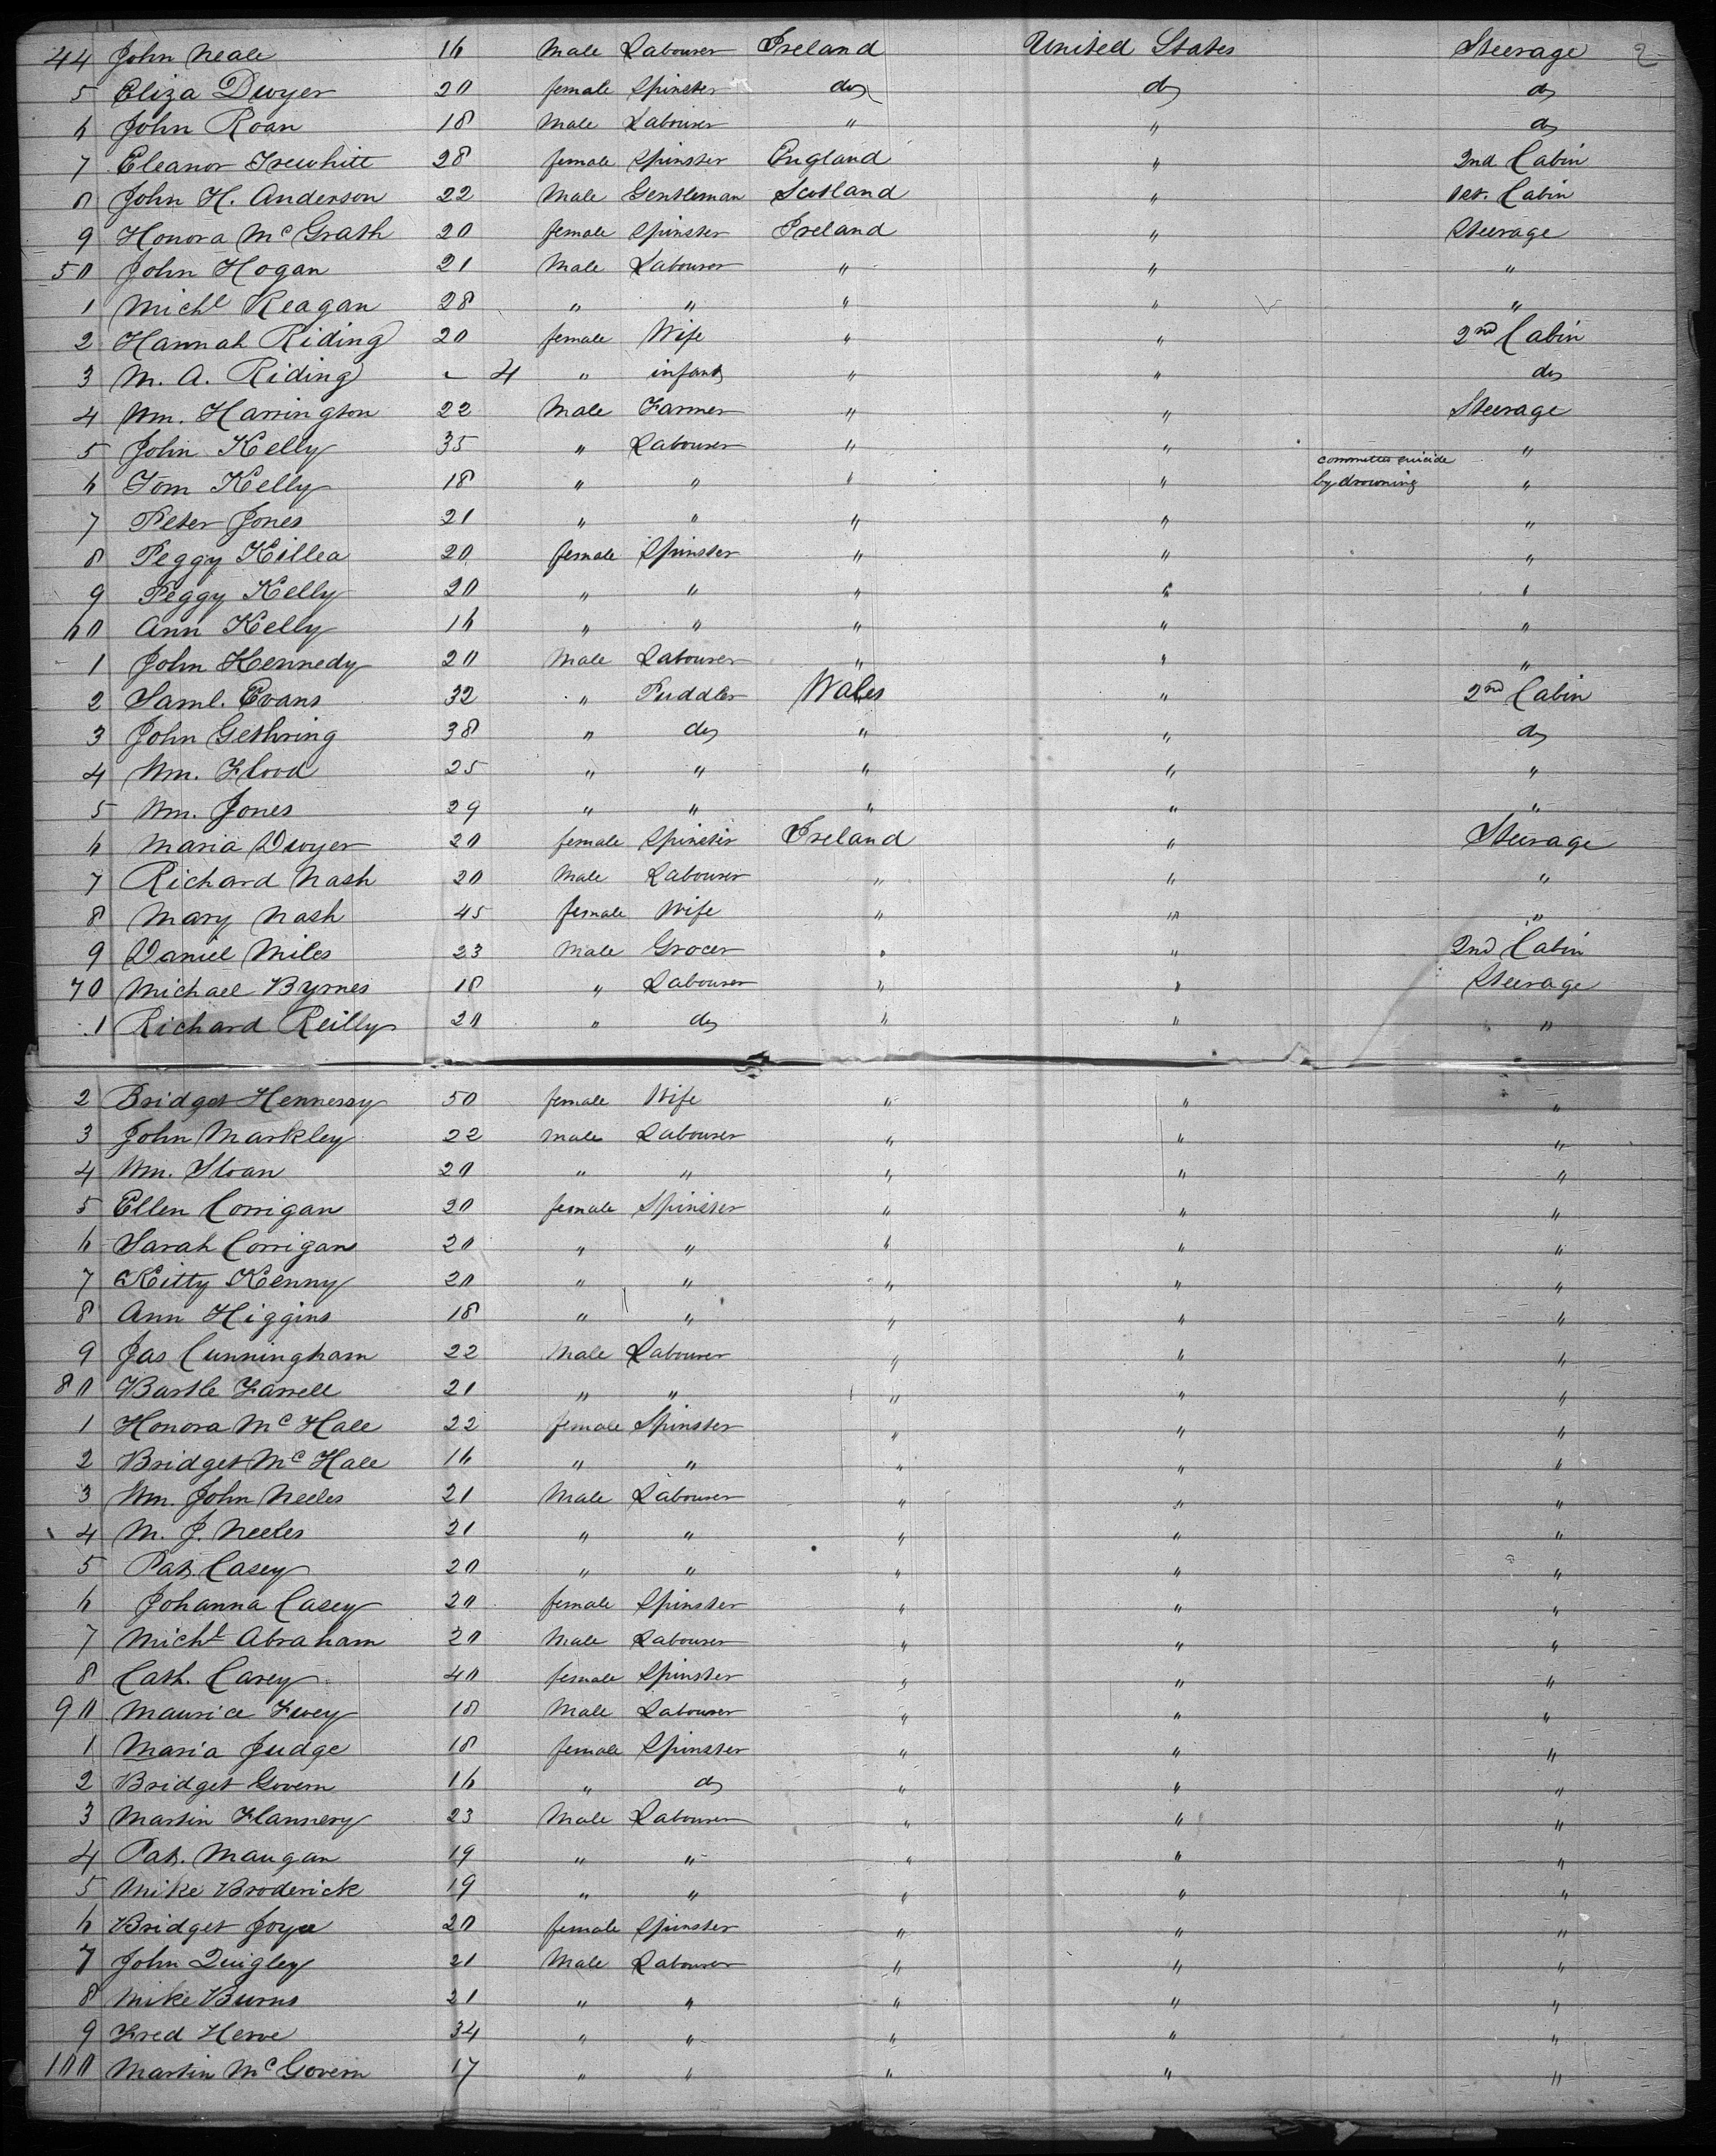 44 John Neale 16 Male Labourer Ireland United States Steerage 2
5 Eliza Dwyer 20 female Spinster do do do
6 John Roan 18 Male Labourer " " do
7 Eleanor Trewhitt 28 female Spinster England " 2nd Cabin
8 John H. Anderson 22 Male Gentleman Scotland " 1st. Cabin
9 Honora McGrath 20 female Spinster Ireland " Steerage
50 John Hogan 21 Male Labourer " " "
1 Michl Reagan 28 " " " " "
2 Hannah Riding 20 female Wife " " 2nd Cabin
3 M. A. Riding - 4 " infant " " do
4 Wm. Harrington 22 Male Farmer " " Steerage
5 John Kelly 35 " Labourer " " "
committed suicide
6 Tom Kelly 18 " " " " by drowning "
7 Peter Jones 21 " " " " "
8 Peggy Killea 20 female Spinster " " "
9 Peggy Kelly 20 " " " " "
60 Ann Kelly 16 " " " " "
1 John Kennedy 20 Male Labourer " " "
2 Saml. Evans 32 " Puddler Wales " 2nd Cabin
3 John Gethring 38 " do " " do
4 Wm. Flood 25 " " " " "
5 Wm. Jones 29 " " " " "
6 Maria Dwyer 20 female Spinster Ireland " Steerage
7 Richard Nash 20 Male Labourer " " "
8 Mary Nash 45 female Wife " " "
9 Daniel Miles 23 Male Grocer " " 2nd Cabin
70 Michael Byrnes 18 " Labourer " " Steerage
1 Richard Reilly 20 " do " " "
2 Bridget Hennessy 50 female Wife " " "
3 John Markley 22 Male Labourer " " "
4 Wm. Sloan 20 " " " " "
5 Ellen Corrigan 20 female Spinster " " "
6 Sarah Corrigan 20 " " " " "
7 Kitty Kenny 20 " " " " "
8 Ann Higgins 18 " " " " "
9 Jas Cunningham 22 Male Labourer " " "
80 Bartle Farrell 21 " " " " "
1 Honora McHale 22 female Spinster " " "
2 Bridget McHale 16 " " " " "
3 Wm. John Neeles 21 Male Labourer " " "
4 M. J. Neeles 21 " " " " "
5 Pat. Casey 20 " " " " "
6 Johanna Casey 20 female Spinster " " "
7 Michl Abraham 20 Male Labourer " " "
8 Cath. Carey 40 female Spinster " " "
90 Maurice 18 Male Labourer " " "
1 Maria Judge 18 female Spinster " " "
2 Bridget Govern 16 " do " " "
3 Martin Flannery 23 Male Labourer " " "
4 Pat. Maugan 19 " " " " "
5 Mike Broderick 19 " " " " "
6 Bridget Joyce 20 female Spinster " " "
7 John Quigley 21 Male Labourer " " "
8 Mike Burns 21 " " " " "
9 Fred Herve 34 " " " " "
100 Martin McGovern 17 " " " " "